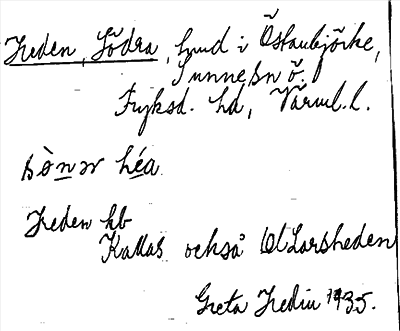 Heden, Södra, hmd i Östanbjörke,
Sunne sn ö.
Fryksd. hd, Värml. l.
sò̱nər hé̱a
Heden kb
Kallas också Ol Larsheden
Greta Hedin 1935.